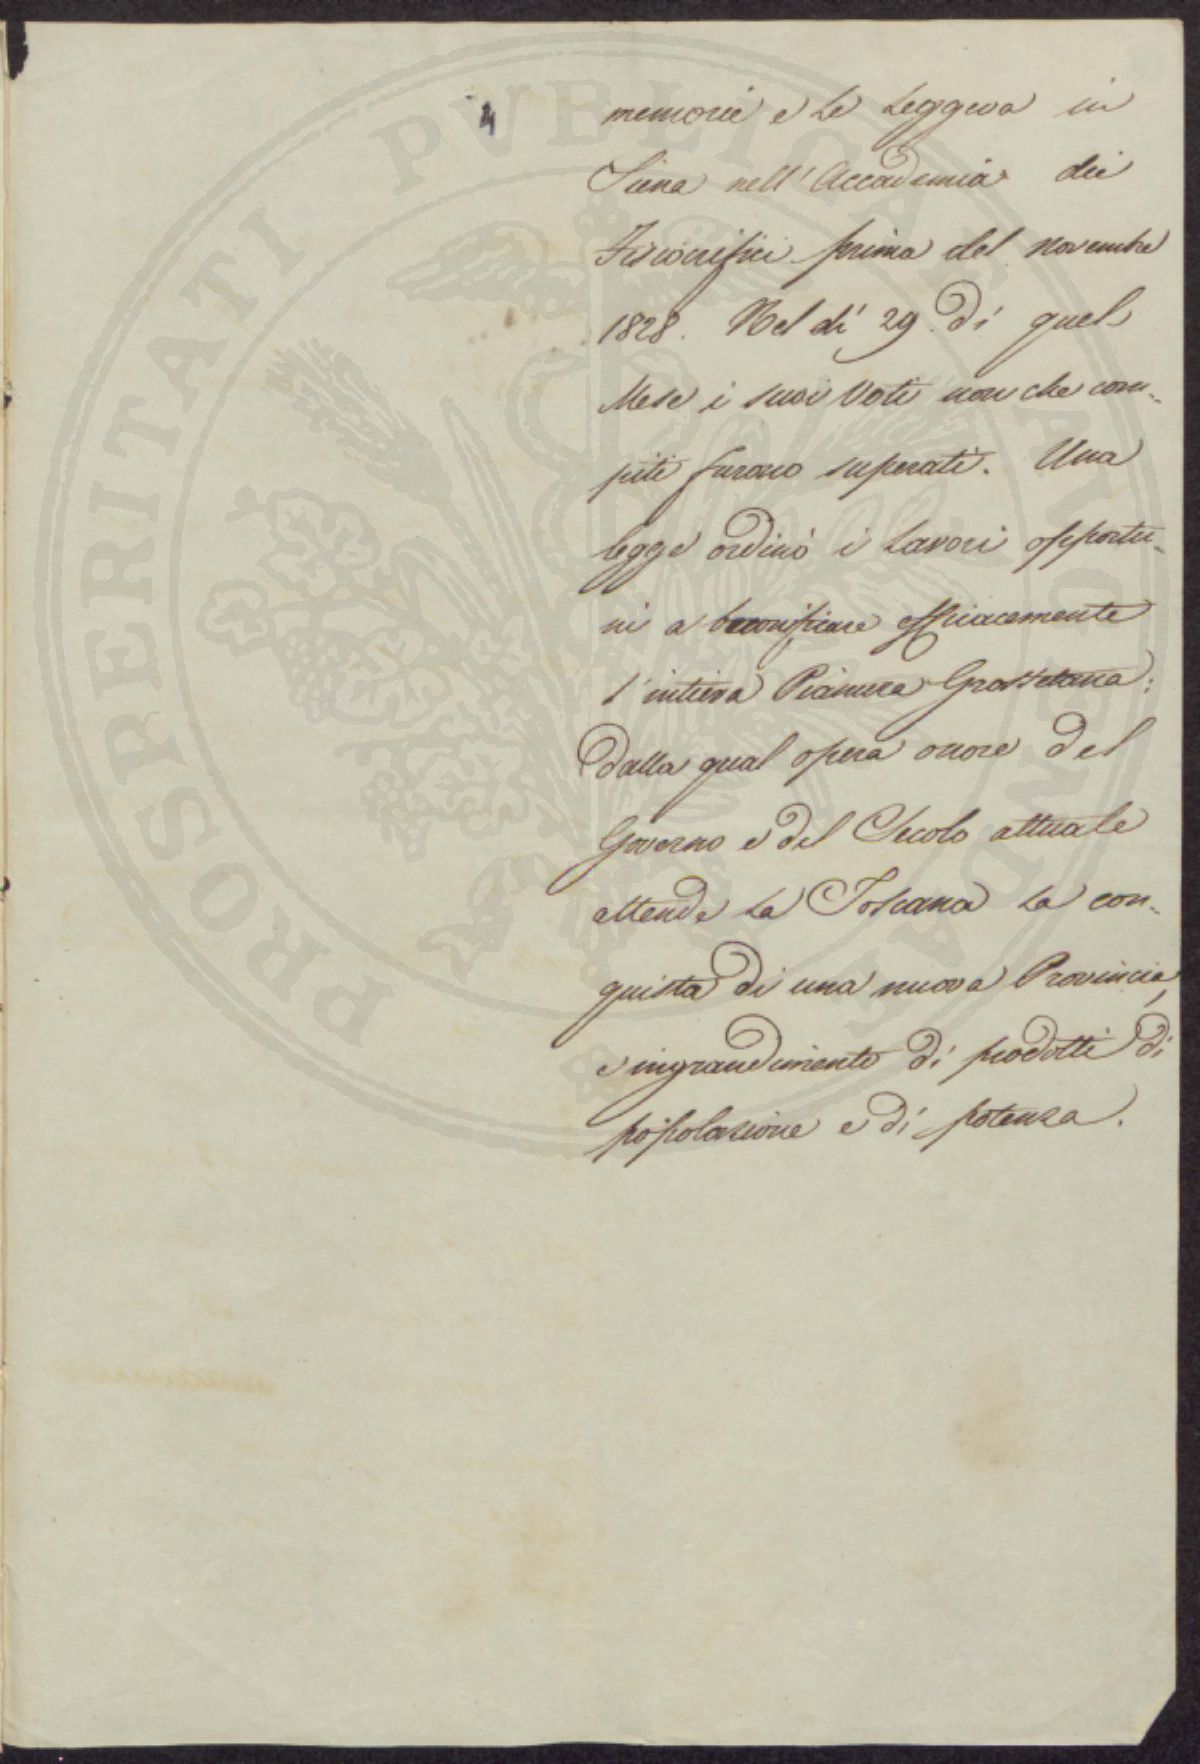 4
memorie e le leggeva in
Siena nell'Accademia dei
Fisiocrifici prima del novembre
1828. Nel dì 29 di quel
Mese i suoi Voti non che com-
piti furono superati. Una
legge ordinò i lavori opportu-
ni a bonificare efficacemente
l'intiera Pianura Grossetana:
dalla qual opera onore del
Governo e del Secolo attuale
attende la Toscana la con-
quista di una nuova Provincia,
e ingrandimento di prodotti di
popolazione e di potenza.
PROSPERITATI PVBLICAE AVGENDAE